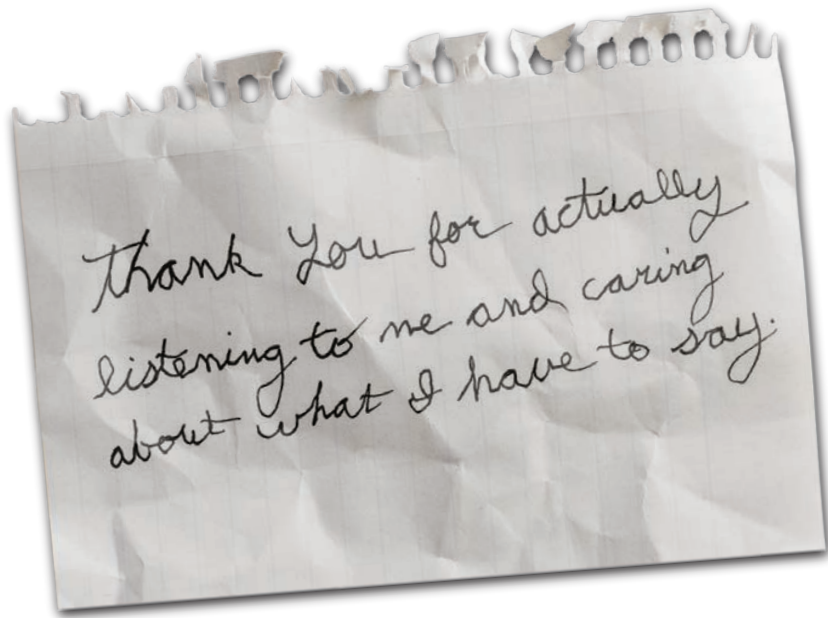 Thank You for actually
listening to me and caring
about what I have to say.